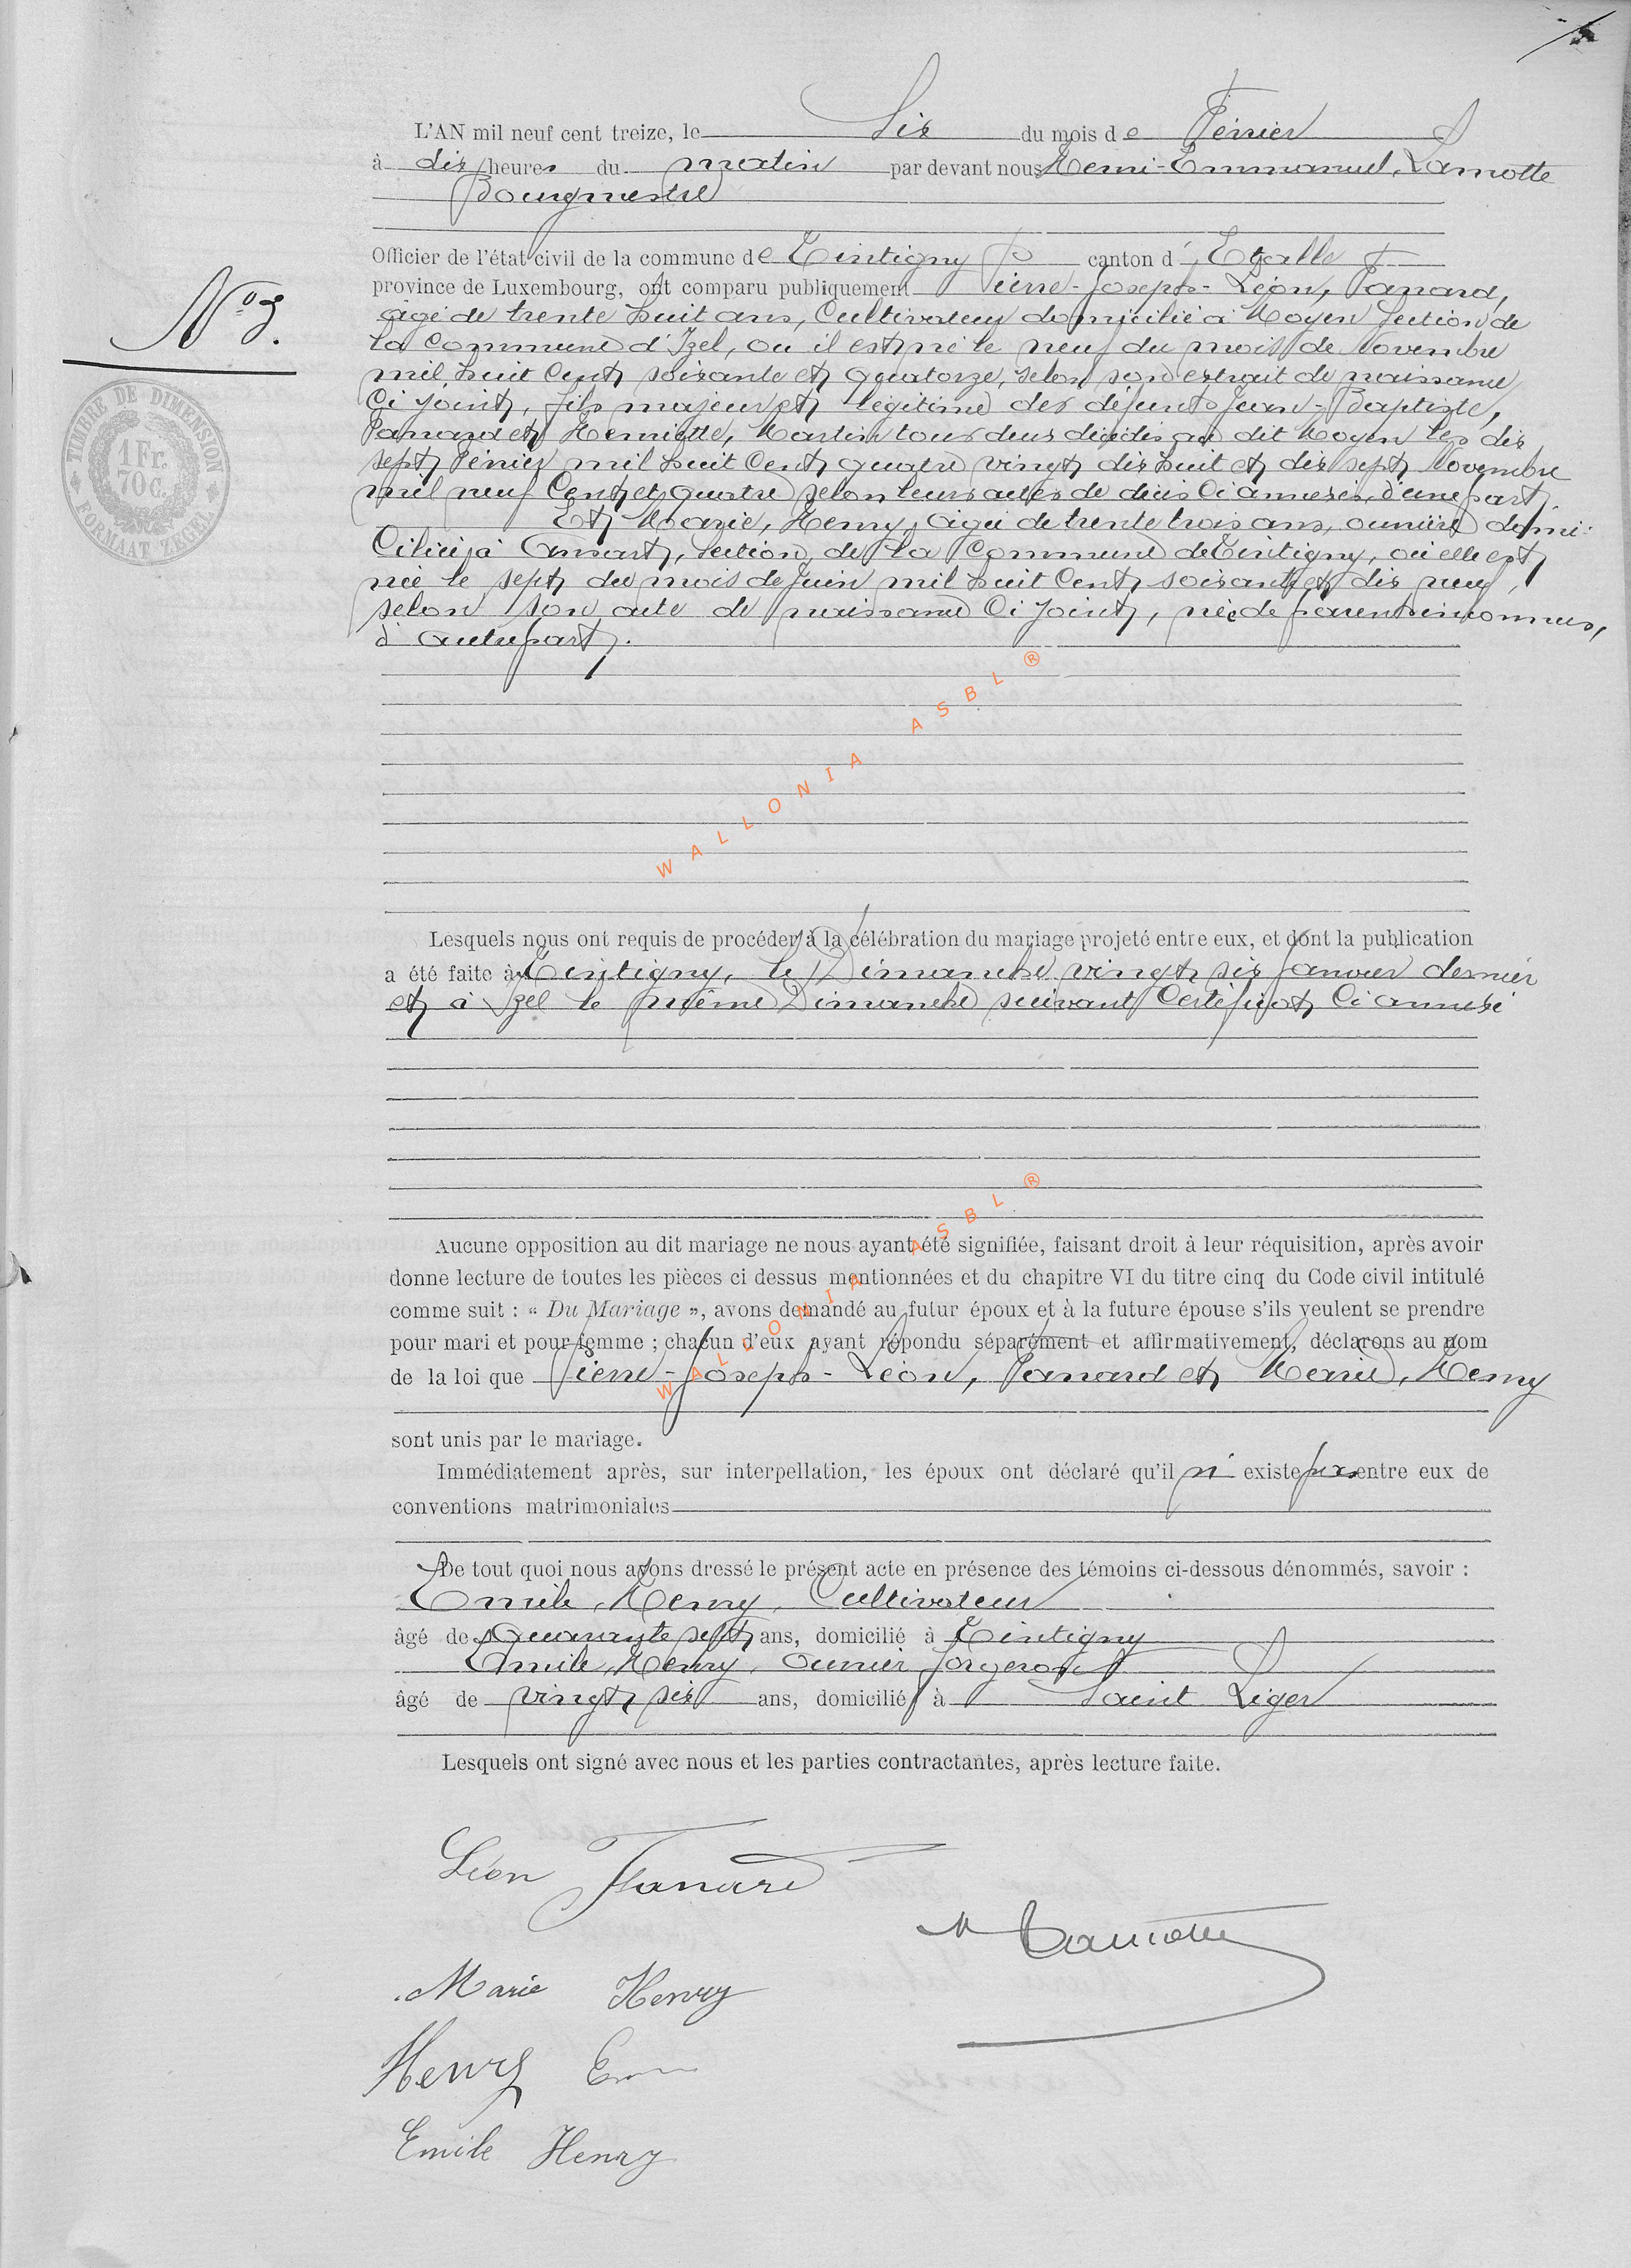 L'AN mil neuf cent treize, le Six du mois de Février
à dix heures du matin par devant nous Henri-Emmanuel, Lamotte
Bourgmestre
Officier de l'état civil de la commune de Tintigny canton d' Etalle
province de Luxembourg, ont comparu publiquement Pierre-Joseph-Léon, Panard,
âgé de trente huit ans, Cultivateur domicilié à Moyen Section de
la Commune d'Izel, ou il est né le neuf du mois de Novembre
mil huit Cent soixante et quatorze, selon son extrait de naissance
Ci joint, fils majeur et légitime des défunts Jean-Baptiste,
Panard et Henriette, Martin tous deux décédés au dit Moyen les dix
sept Février mil huit Cent quatre vingt dix huit et dix sept Novembre
mil neuf Cent et quatre selon leurs actes de décès Ci annexés, d'une part
Et Marie, Henry, âgée de trente trois ans, ouvrière domi-
Ciliée à Ansart, Section de la Commune de Tintigny, où elle est
née le sept du mois de Juin mil huit Cent soixante et dix neuf,
selon son acte de naissance Ci joint, née de parents inconnus,
d'autre part.
N° 3.
TIMBRE DE DIMENSION
1 Fr.
70 C.
FORMAAT ZEGEL
WALLONIA ASBL ®
Lesquels nous ont requis de procéder à la célébration du mariage projeté entre eux, et dont la publication
a été faite à Tintigny, le Dimanche vingt six Janvier dernier
et à Izel le même Dimanche suivant Certificat Ci annexé
WALLONIA ASBL ®
Aucune opposition au dit mariage ne nous ayant été signifiée, faisant droit à leur réquisition, après avoir
donne lecture de toutes les pièces ci dessus mentionnées et du chapitre VI du titre cinq du Code civil intitulé
comme suit : « Du Mariage », avons demandé au futur époux et à la future épouse s'ils veulent se prendre
pour mari et pour femme ; chacun d'eux ayant répondu séparément et affirmativement, déclarons au nom
de la loi que Pierre-Joseph-Léon, Panard et Marie, Henry
sont unis par le mariage.
Immédiatement après, sur interpellation, les époux ont déclaré qu'il n' existe pas entre eux de
conventions matrimoniales
De tout quoi nous avons dressé le présent acte en présence des témoins ci-dessous dénommés, savoir :
Emile, Henry, Cultivateur
âgé de Quarante sept ans, domicilié à Tintigny
Emile, Henry, Ouvrier forgeron
âgé de vingt six ans, domicilié à Saint Léger
Lesquels ont signé avec nous et les parties contractantes, après lecture faite.
Léon Panard
Lamotte
Marie Henry
Henry
Emile Henry